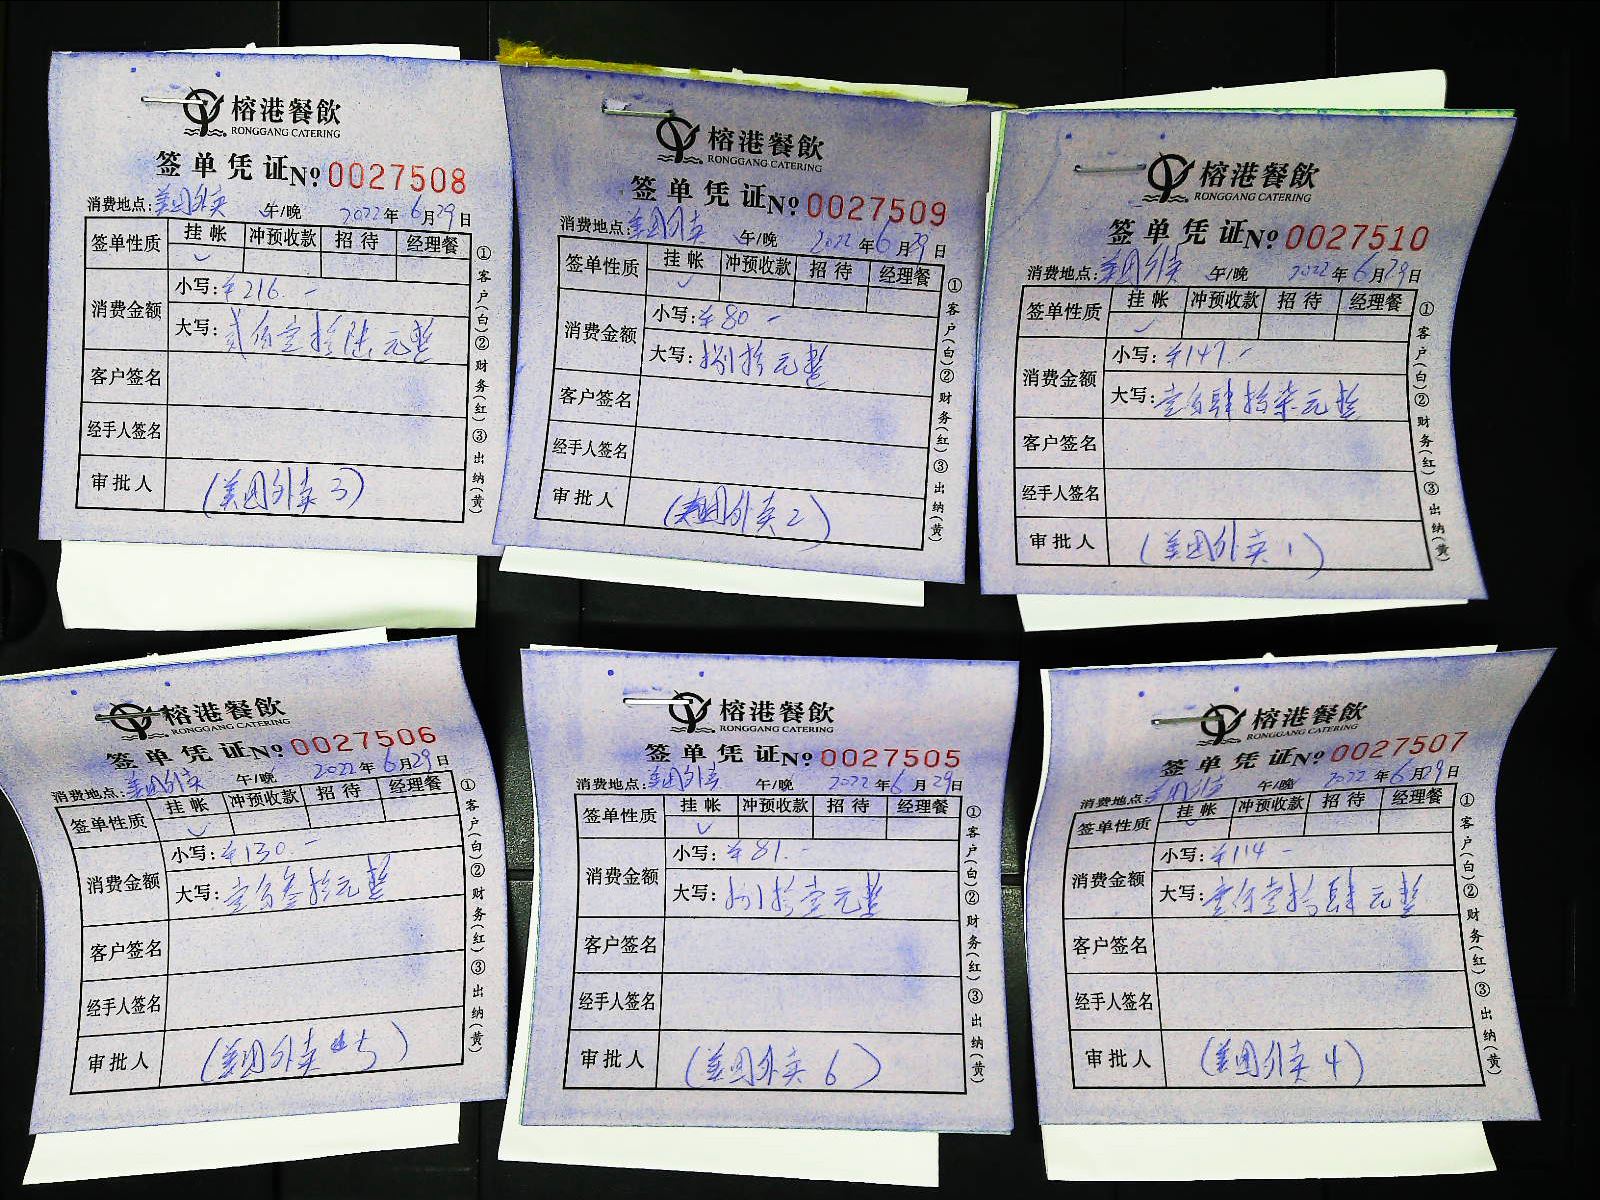 榕港餐飲
RONGGANG CATERING
签单凭证 No 0027508
消费地点:美团外卖 午/晚 2022年6月29日
签单性质 挂帐 冲预收款 招待 经理餐
消费金额
小写:¥216.-
大写:贰佰壹拾陆元整
客户签名
经手人签名
审批人 (美团外卖3)
①客户(白)②财务(红)③出纳(黄)
榕港餐飲
RONGGANG CATERING
签单凭证 No 0027509
消费地点:美团外卖 午/晚 2022年6月29日
签单性质 挂帐 冲预收款 招待 经理餐
消费金额
小写:¥80-
大写:捌拾元整
客户签名
经手人签名
审批人 (美团外卖2)
①客户(白)②财务(红)③出纳(黄)
榕港餐飲
RONGGANG CATERING
签单凭证 No 0027510
消费地点:美团外卖 午/晚 2022年6月29日
签单性质 挂帐 冲预收款 招待 经理餐
消费金额
小写:¥147.-
大写:壹佰肆拾柒元整
客户签名
经手人签名
审批人 (美团外卖1)
①客户(白)②财务(红)③出纳(黄)
榕港餐飲
RONGGANG CATERING
签单凭证 No 0027506
消费地点:美团外卖 午/晚 2022年6月29日
签单性质 挂帐 冲预收款 招待 经理餐
消费金额
小写:¥130.-
大写:壹佰叁拾元整
客户签名
经手人签名
审批人 (美团外卖5)
①客户(白)②财务(红)③出纳(黄)
榕港餐飲
RONGGANG CATERING
签单凭证 No 0027505
消费地点:美团外卖 午/晚 2022年6月29日
签单性质 挂帐 冲预收款 招待 经理餐
消费金额
小写:¥81.-
大写:捌拾壹元整
客户签名
经手人签名
审批人 (美团外卖6)
①客户(白)②财务(红)③出纳(黄)
榕港餐飲
RONGGANG CATERING
签单凭证 No 0027507
消费地点:美团外卖 午/晚 2022年6月29日
签单性质 挂帐 冲预收款 招待 经理餐
消费金额
小写:¥114-
大写:壹佰壹拾肆元整
客户签名
经手人签名
审批人 (美团外卖4)
①客户(白)②财务(红)③出纳(黄)